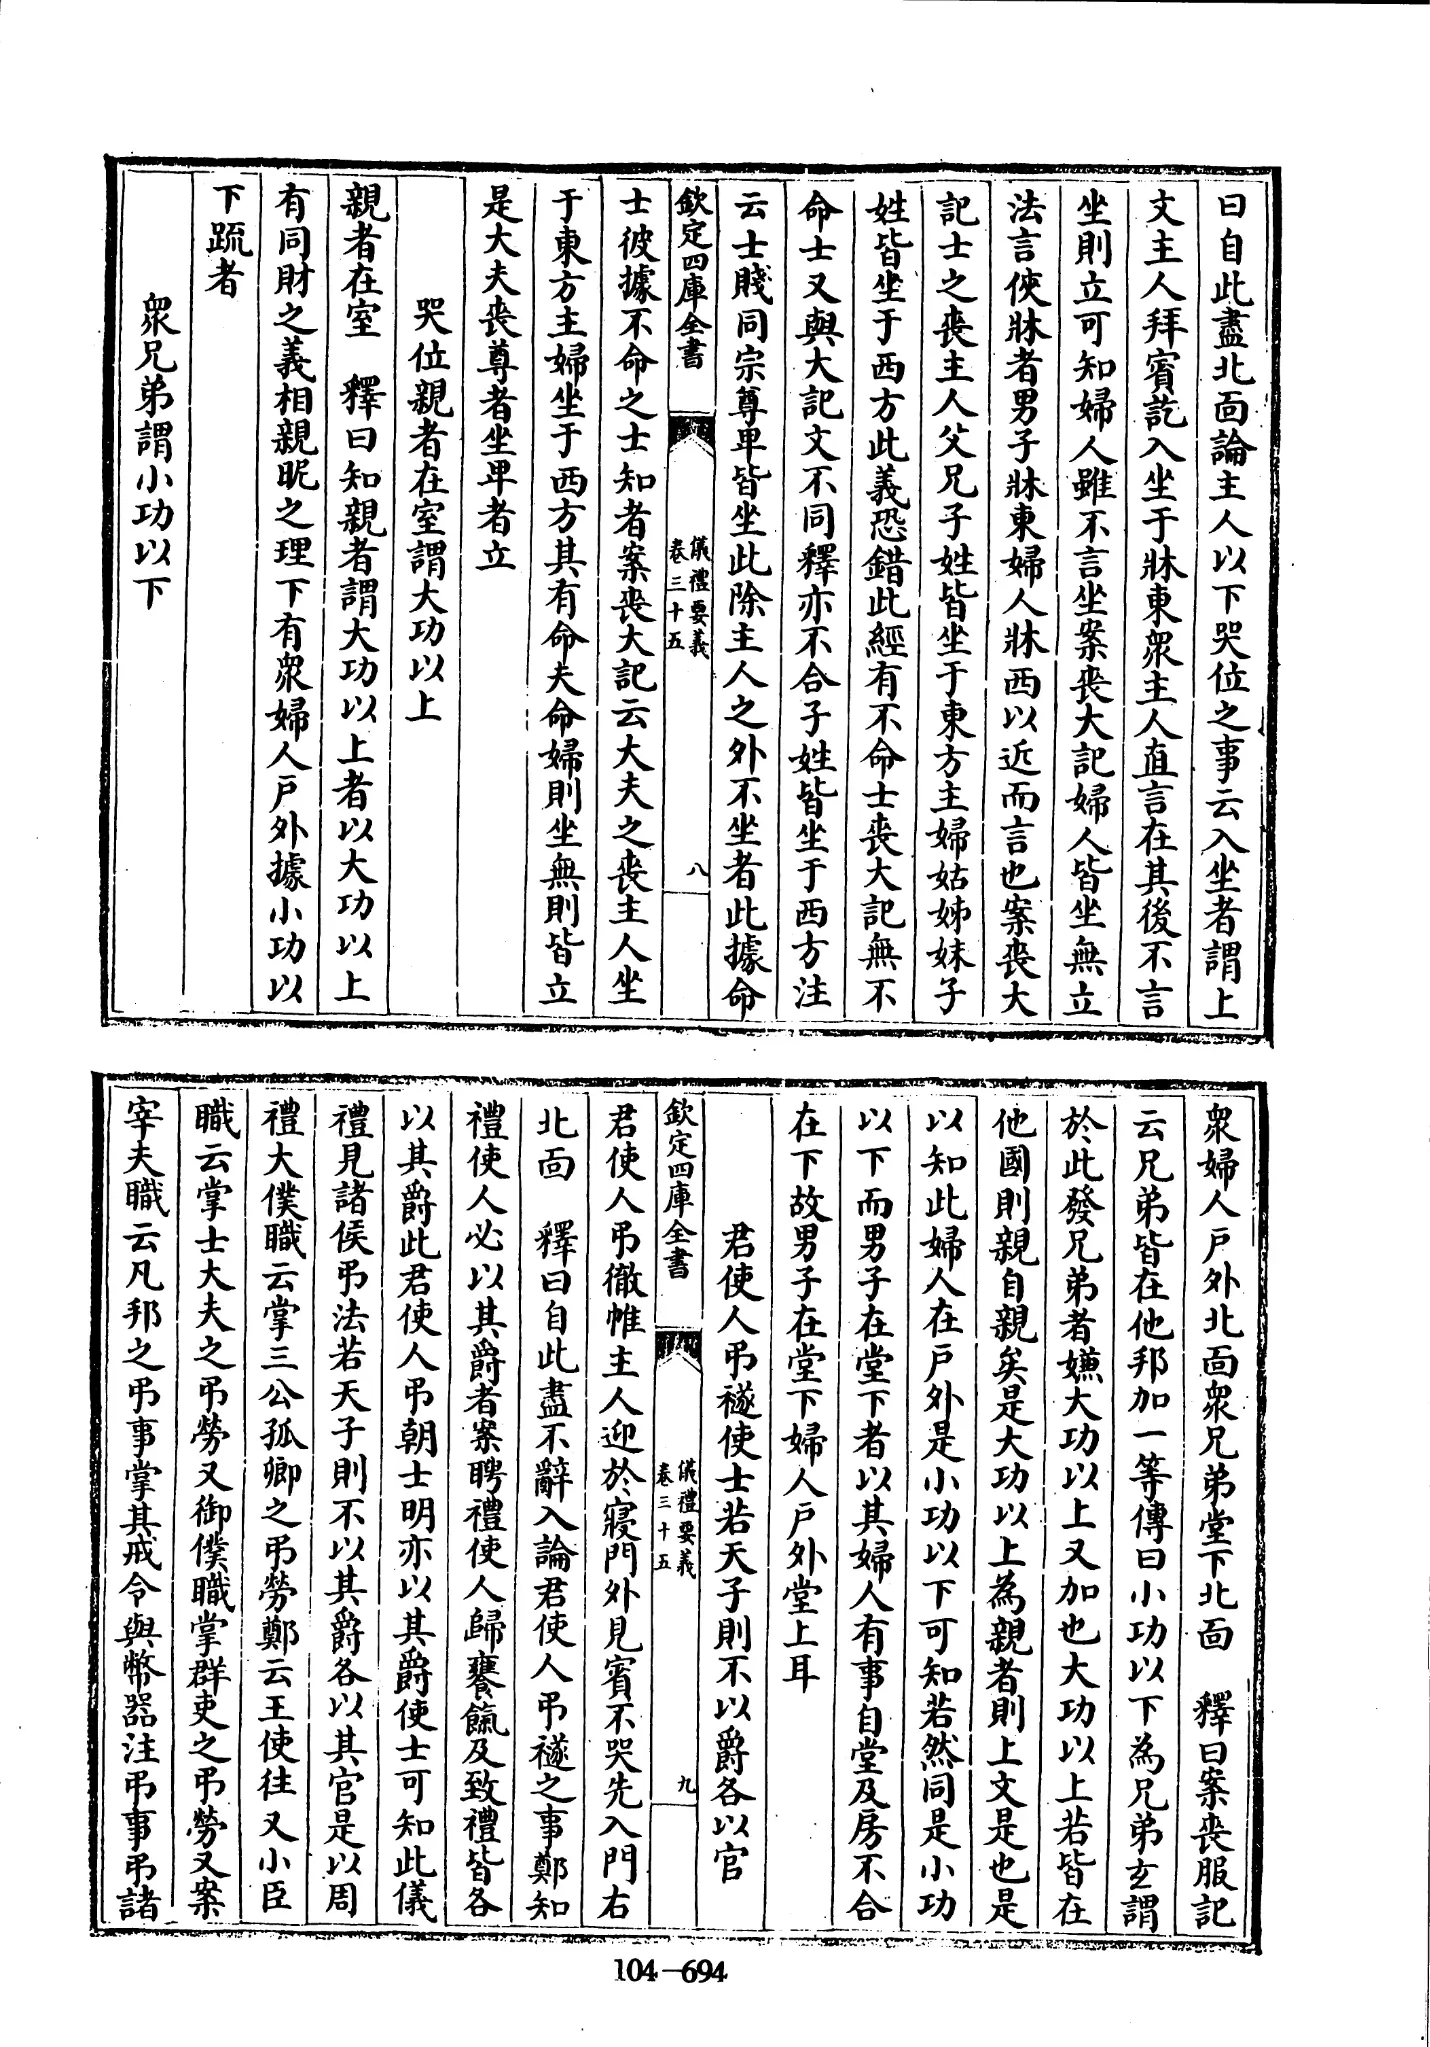 曰自此盡北面論主人以下哭位之事云入坐者謂上
文主人拜賓訖入坐于牀東衆主人直言在其後不言
坐則立可知婦人雖不言坐案喪大記婦人皆坐無立
法言俠牀者男子牀東婦人牀西以近而言也案喪大
記士之喪主人父兄子姓皆坐于東方主婦姑姊妹子
姓皆坐于西方此義恐錯此經有不命士喪大記無不
命士又與大記文不同釋亦不合子姓皆坐于西方注
云士賤同宗尊卑皆坐此除主人之外不坐者此據命
欽定四庫全書
儀禮要義
卷三十五
八
士彼據不命之士知者案喪大記云大夫之喪主人坐
于東方主婦坐于西方其有命夫命婦則坐無則皆立
是大夫喪尊者坐卑者立
哭位親者在室謂大功以上
親者在室 釋曰知親者謂大功以上者以大功以上
有同財之義相親昵之理下有衆婦人戶外據小功以
下疏者
衆兄弟謂小功以下
衆婦人戶外北面衆兄弟堂下北面 釋曰案喪服記
云兄弟皆在他邦加一等傳曰小功以下為兄弟玄謂
於此發兄弟者嫌大功以上又加也大功以上若皆在
他國則親自親矣是大功以上為親者則上文是也是
以知此婦人在戶外是小功以下可知若然同是小功
以下而男子在堂下者以其婦人有事自堂及房不合
在下故男子在堂下婦人戶外堂上耳
君使人弔襚使士若天子則不以爵各以官
欽定四庫全書
儀禮要義
卷三十五
九
君使人弔徹帷主人迎於寢門外見賓不哭先入門右
北面 釋曰自此盡不辭入論君使人弔襚之事鄭知
禮使人必以其爵者案聘禮使人歸饔餼及致禮皆各
以其爵此君使人弔朝士明亦以其爵使士可知此儀
禮見諸侯弔法若天子則不以其爵各以其官是以周
禮大僕職云掌三公孤卿之弔勞鄭云王使往又小臣
職云掌士大夫之弔勞又御僕職掌群吏之弔勞又案
宰夫職云凡邦之弔事掌其戒令與幣器注弔事弔諸
104-694